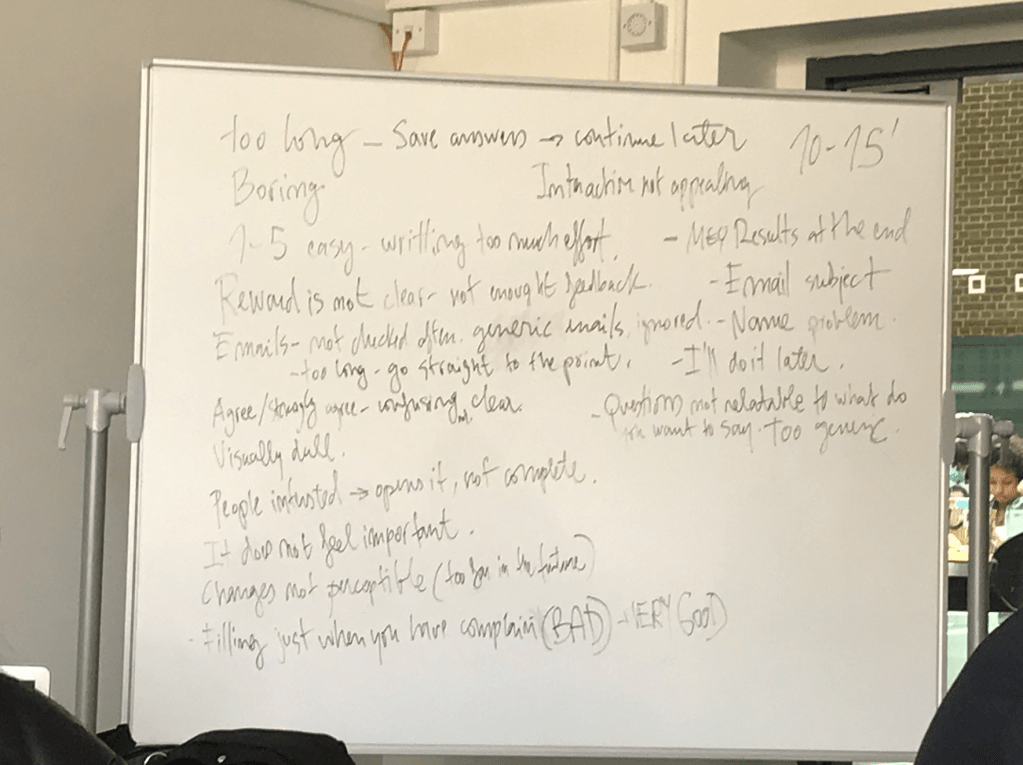 too long – Save answers → continue later
10-15'
Boring
Interaction not appealing
1-5 easy - writting too much effort.
- MEQ Results at the end
Reward is not clear - not enought feedback.
- Email subject
Emails - not checked often. generic emails, ignored.
- Name problem.
- too long - go straight to the point.
- I'll do it later.
Agree/strongly agree - confusing, clear.
- Questions not relatable to what do
you want to say. too generic.
Visually dull.
People intrusted → opens it, not complete.
It does not feel important.
Changes not perceptible (too far in the future)
- Filling just when you have complain (BAD) - VERY GOOD